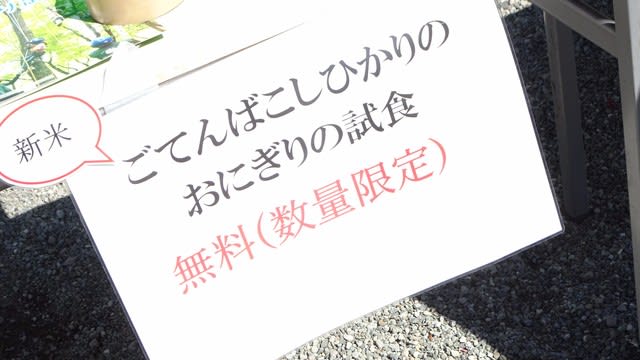 新米
ごてんばこしひかりの
おにぎりの試食
無料(数量限定)